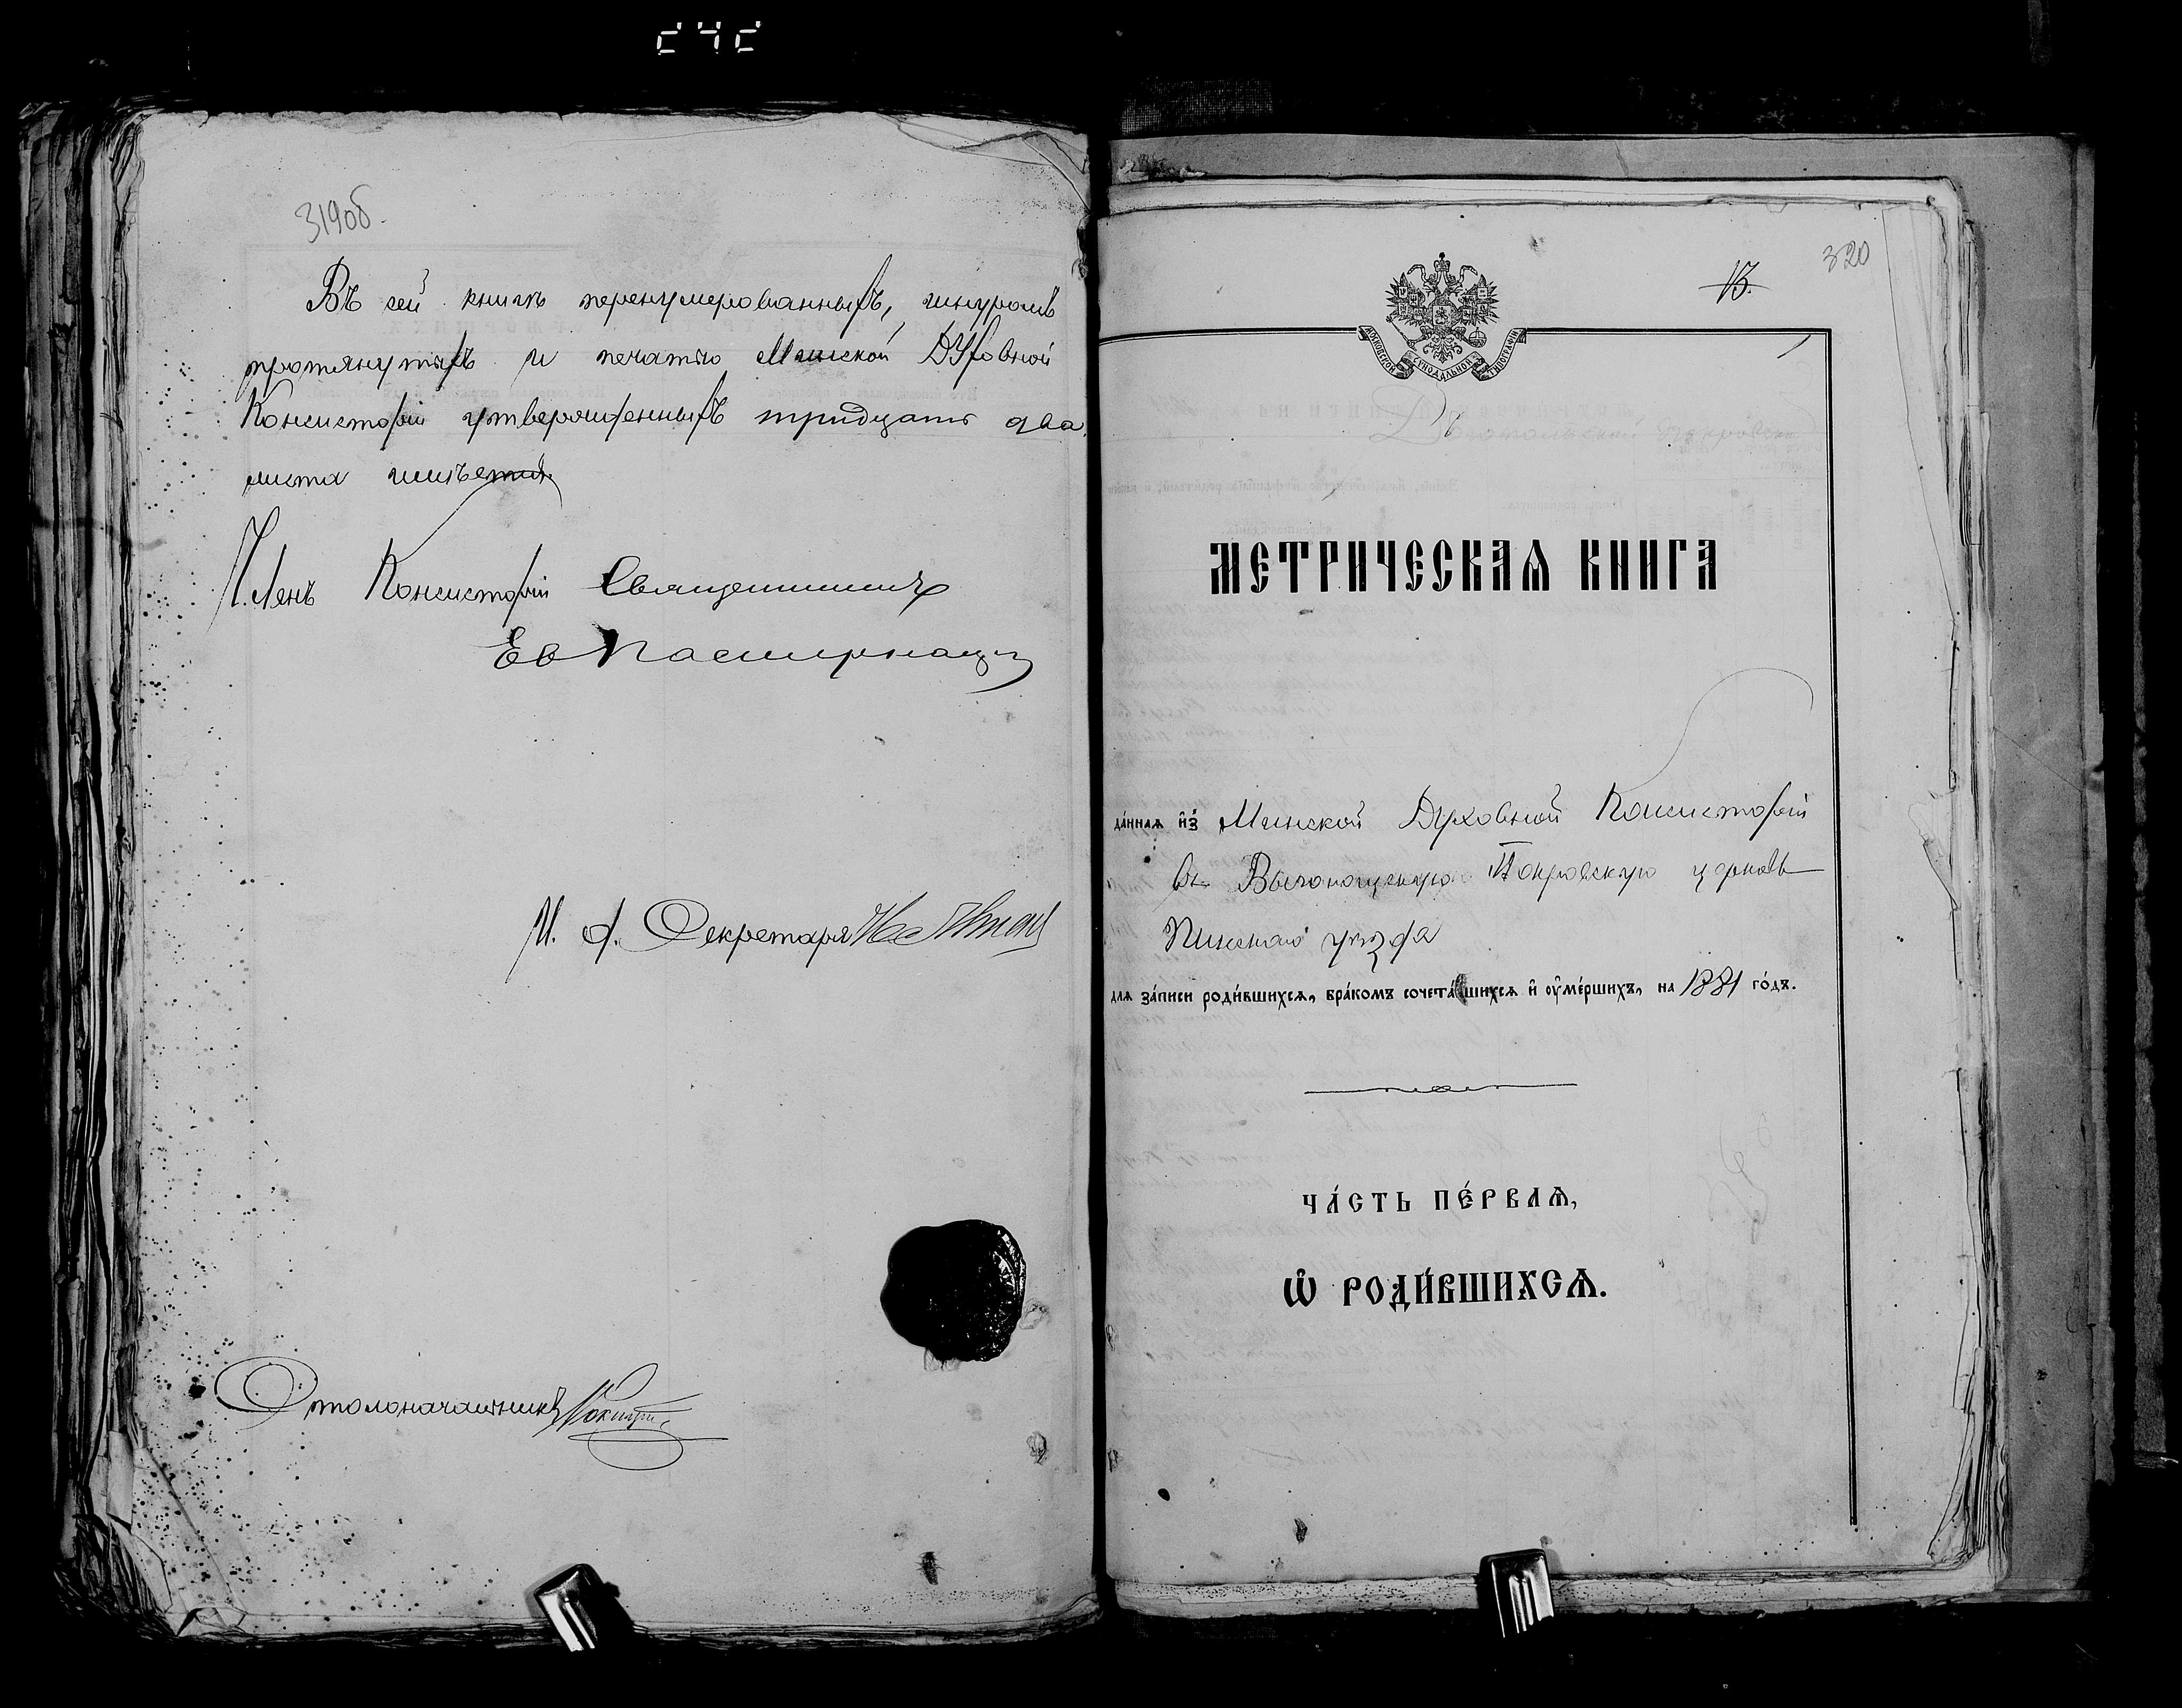 319об.
Въ сей книгѣ перенумерованныхъ, шнуромъ
протянутыхъ и печатью Минской Духовной
Консисторіи утвержденныхъ тридцать два
листа имѣется.
Членъ Консисторіи Священникъ
И. д. Секретаря
Столоначальникъ
320
13.
МОСКОВСКОЙ СѴНОДАЛЬНОЙ ТИПОГРАФІИ
МЕТРИЧЕСКАѦ КНИГА
да́ннаѧ и҆з̾ Минской Духовной Консисторіи
въ Выгонощскую Покровскую церковь
Пинскаго уѣзда
длѧ за́писи роди́вшихсѧ, бра́комъ сочета́вшихсѧ и҆ ᲂу҆ме́ршихъ, на 1881 го́дъ.
ЧА́СТЬ ПЕ́РВАѦ,
Ѽ РОДИ́ВШИХСѦ.